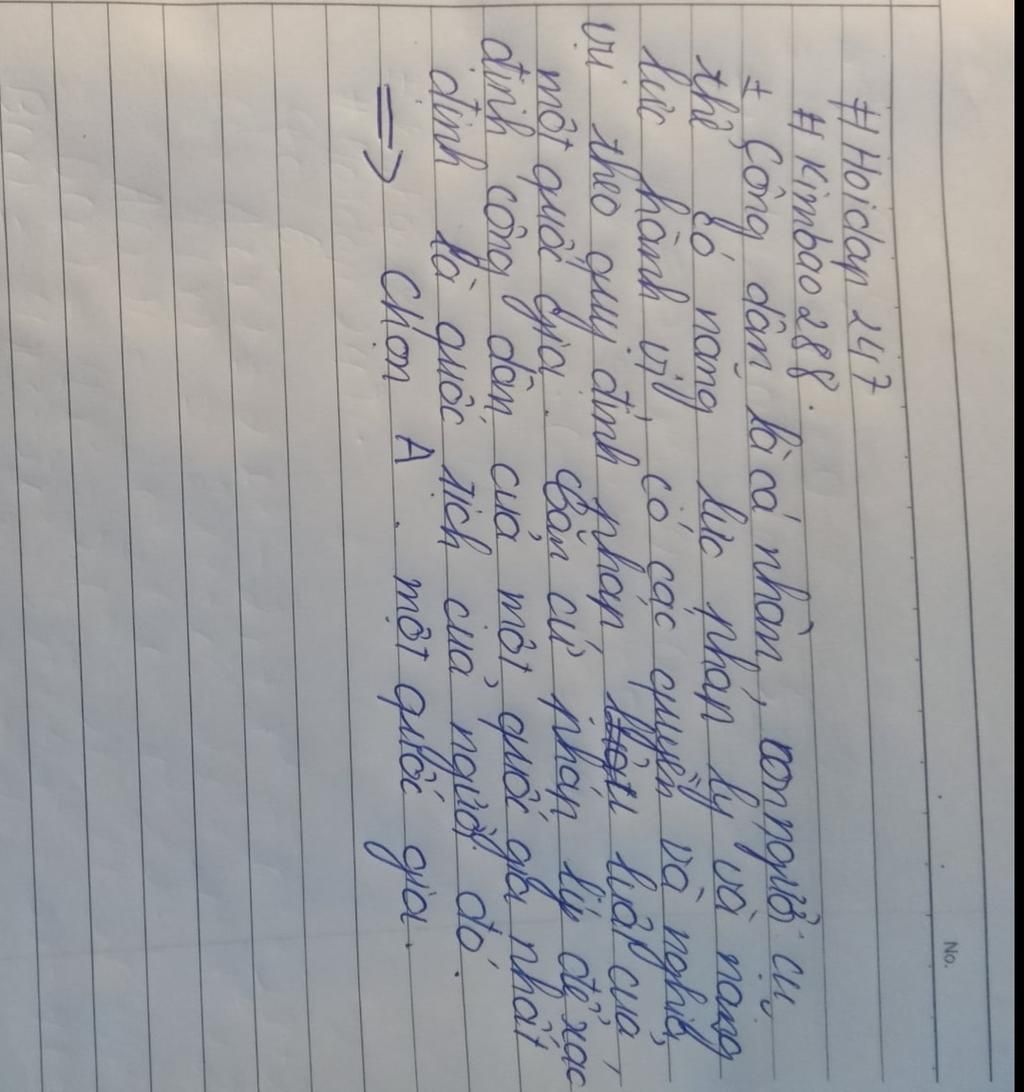 No.
#Hoidap 247
#Kimbao288.
± Công dân là cá nhân, con người cụ
thể, có năng lực pháp lý và năng
lực hành vi, có các quyền và nghĩa
vụ theo quy định pháp luật của
một quốc gia. Căn cứ pháp lý để xác
định công dân của một quốc gia nhất
định là quốc tịch của người đó.
⇒ Chọn A. một quốc gia.